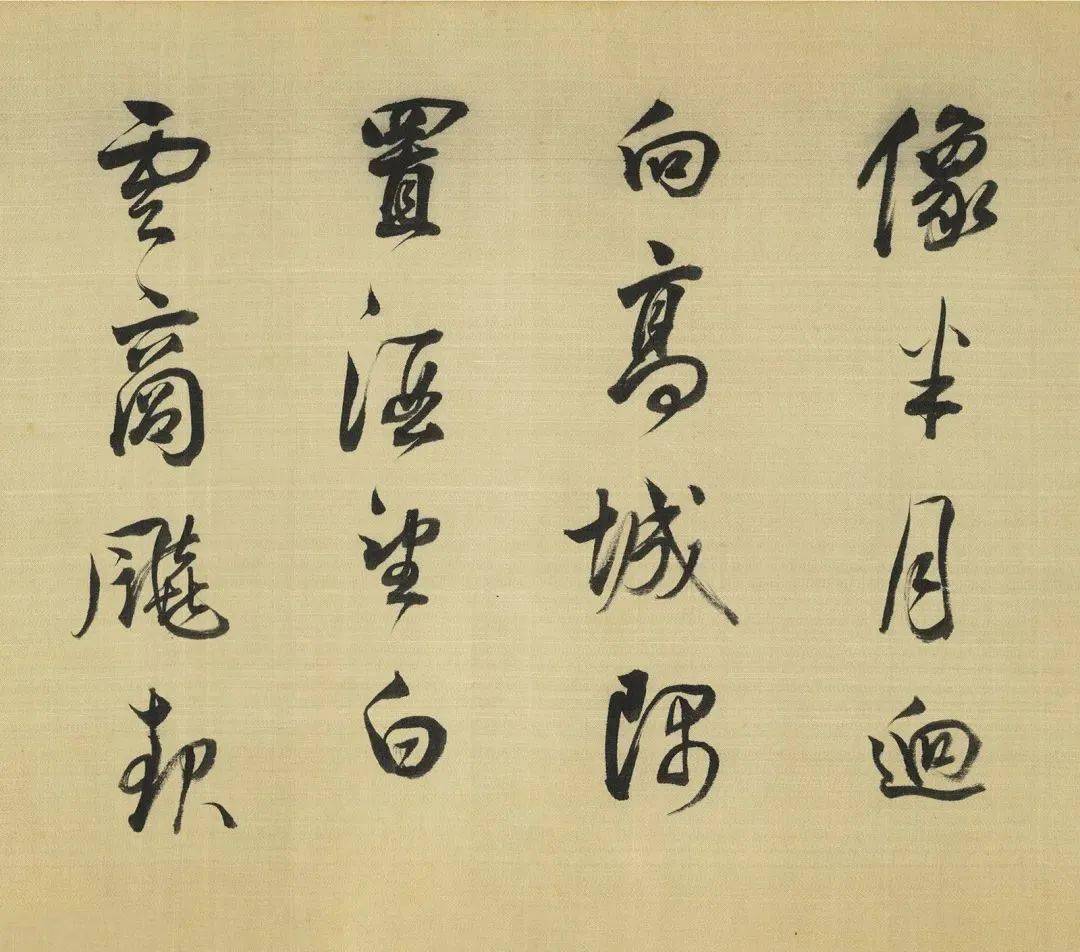 像半月逈
向高城隅
置酒望白
雲商飈起